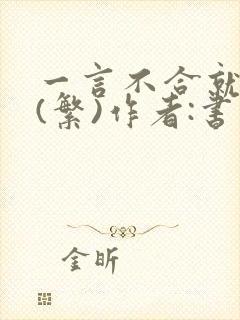 一言不合就
(繁)作者:書
金昕